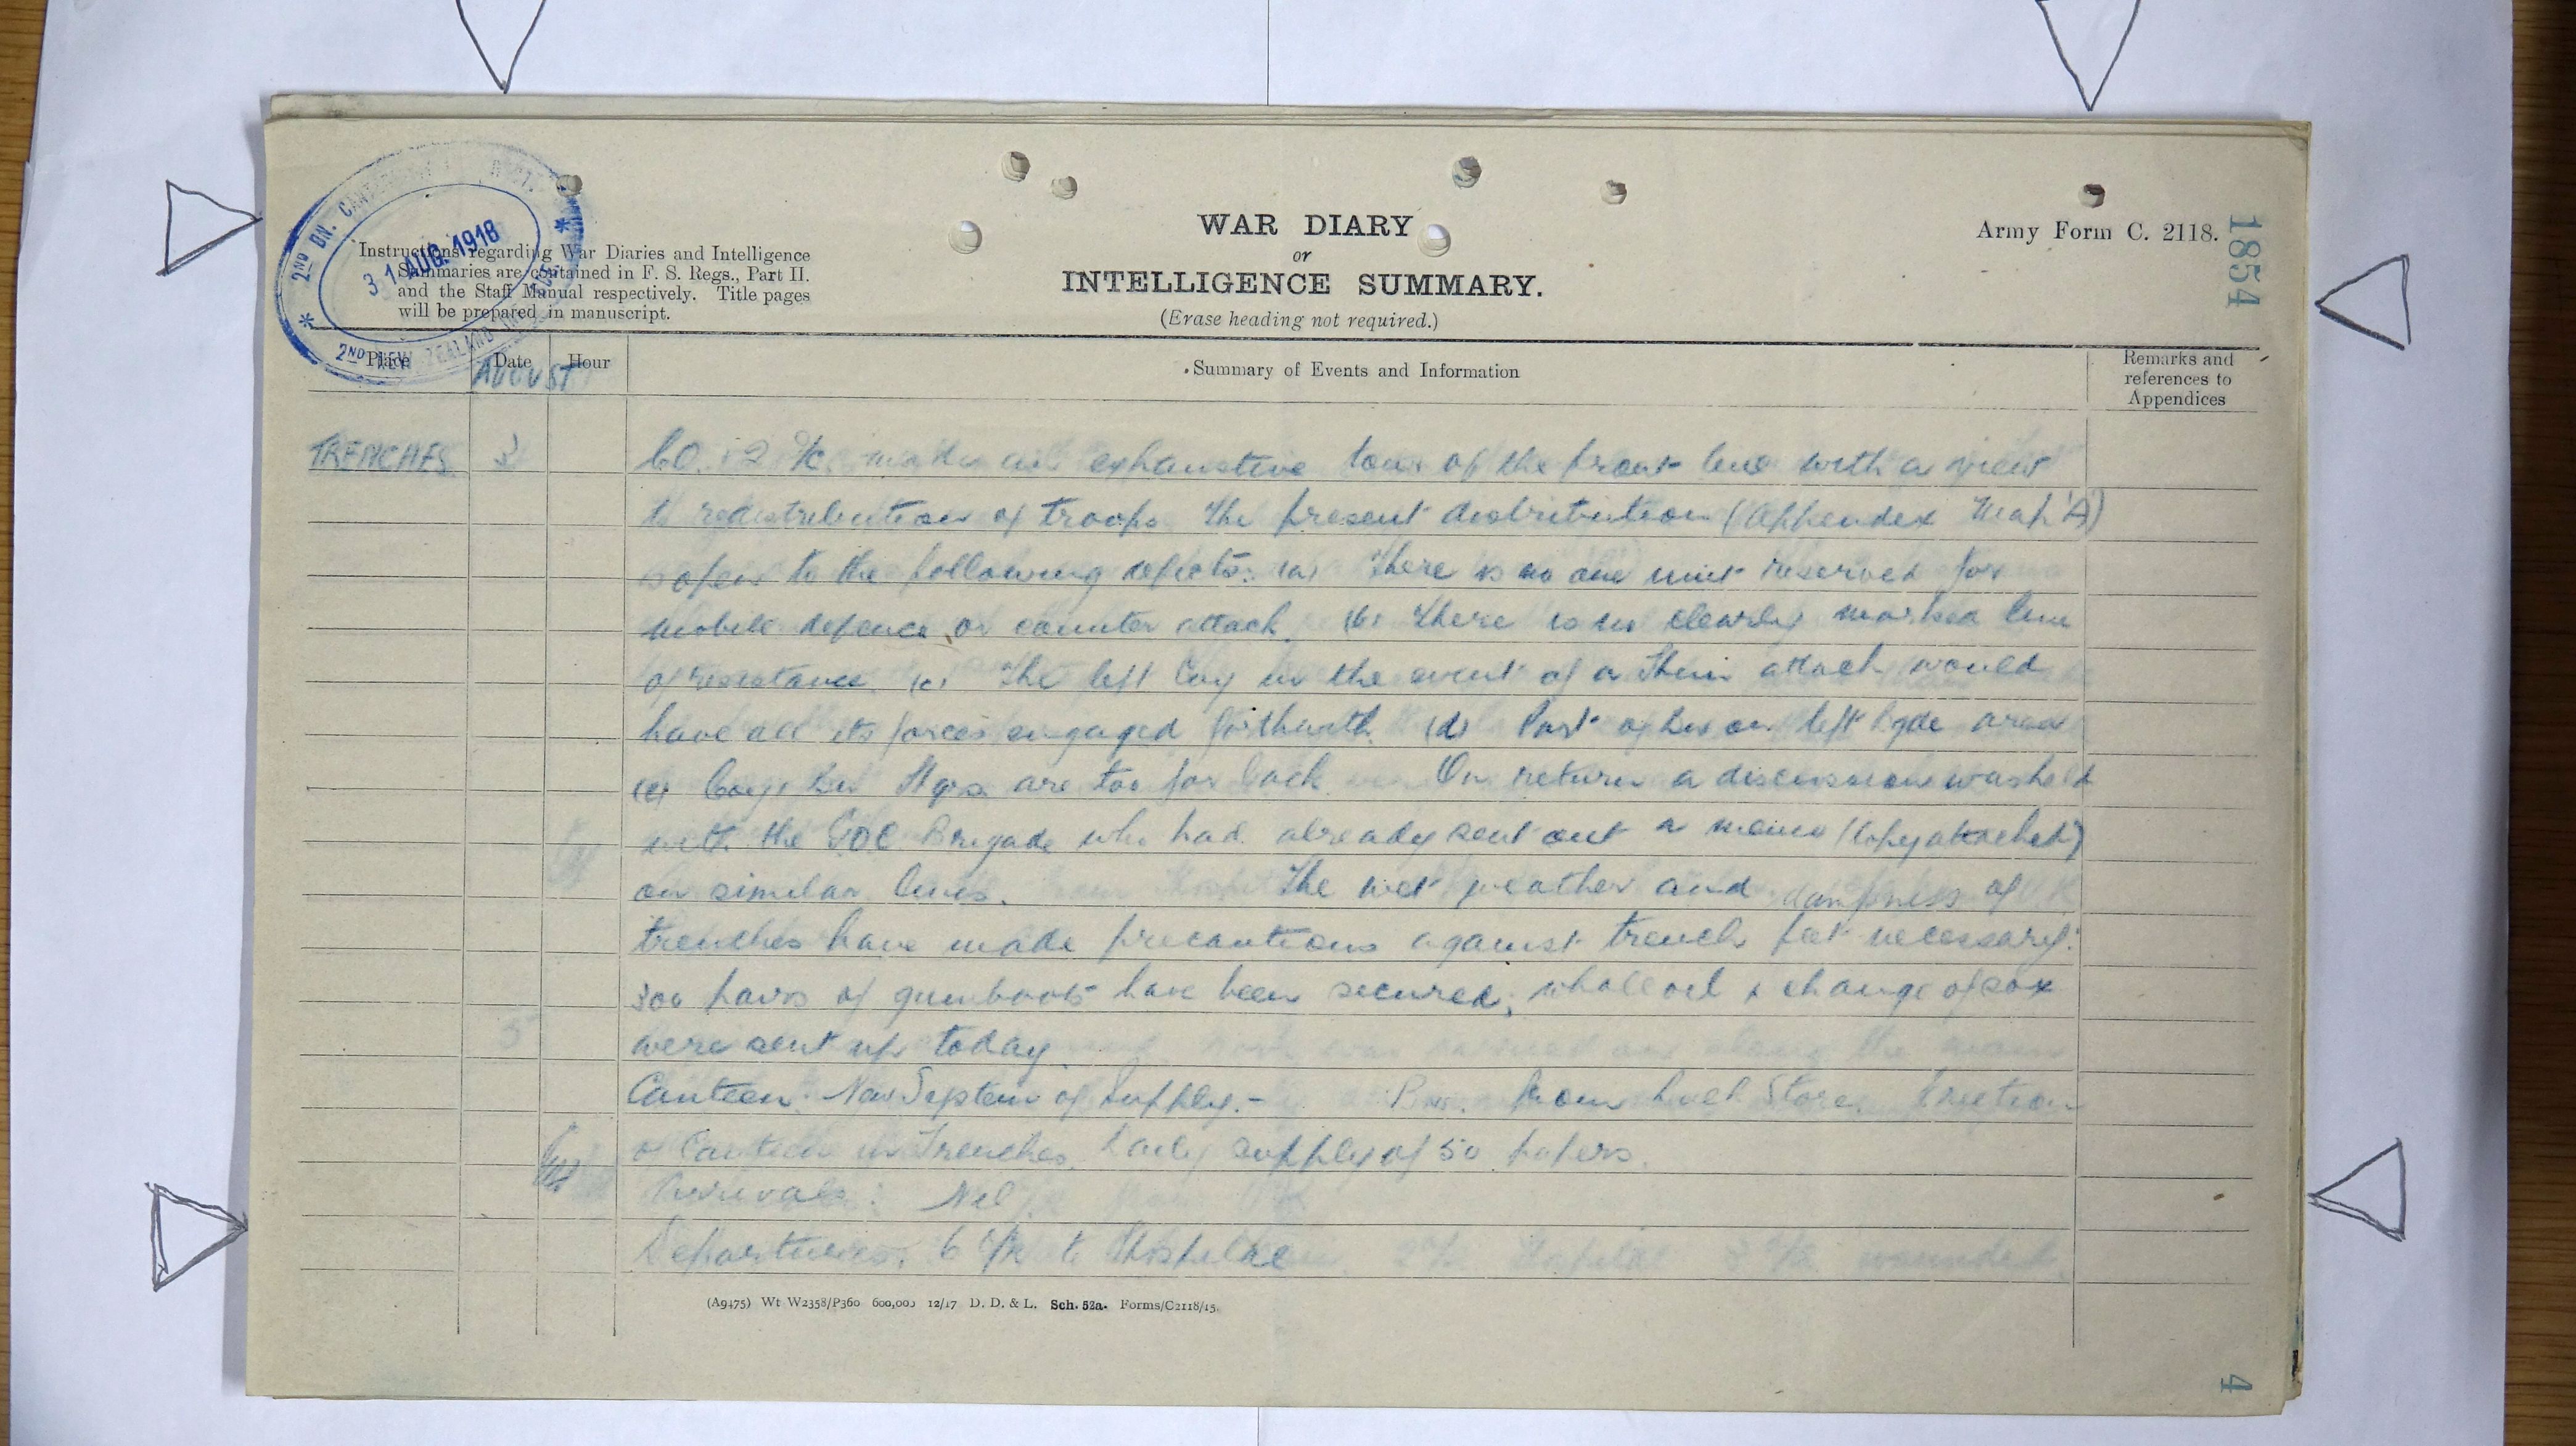 2ND BN. CANTERBURY REGT.
31 AUG. 1918
2ND NEW ZEALAND
Instructions regarding War Diaries and Intelligence
Summaries are contained in F. S. Regs., Part II.
and the Staff Manual respectively. Title pages
will be prepared in manuscript.
WAR DIARY
or
INTELLIGENCE SUMMARY.
(Erase heading not required.)
Army Form C. 2118.
1854
Place Date Hour Summary of Events and Information Remarks and references to Appendices
AUGUST
TRENCHES 3 C.O. & 2 i/c made an exhaustive tour of the front line with a view
to redistribution of troops. The present distribution (Appendix Map 'A')
is open to the following defects: (a) There is no one unit reserved for
mobile defence or counter attack. (b) There is no clearly marked line
of resistance. (c) The left Coy in the event of a attack would
have all its forces engaged forthwith. (d) Part of Bn on left Bde area
(e) Coy & Bn Hqrs are too far back. On return a discussion was held
with the GOC Brigade who had already sent out a memo (Copy attached)
on similar lines. The wet weather and dampness of
trenches have made precautions against trench feet necessary.
300 pairs of gumboots have been secured; whale oil & change of sox
were sent up today.
Canteen: New System of Supply:- from Store. Erection
of Canteen in Trenches. Daily supply of 50 papers.
Arrivals: Nil
Departures: 6 to Hospital
(A9475) Wt W2358/P360 600,000 12/17 D. D. & L. Sch. 52a. Forms/C2118/15.
4